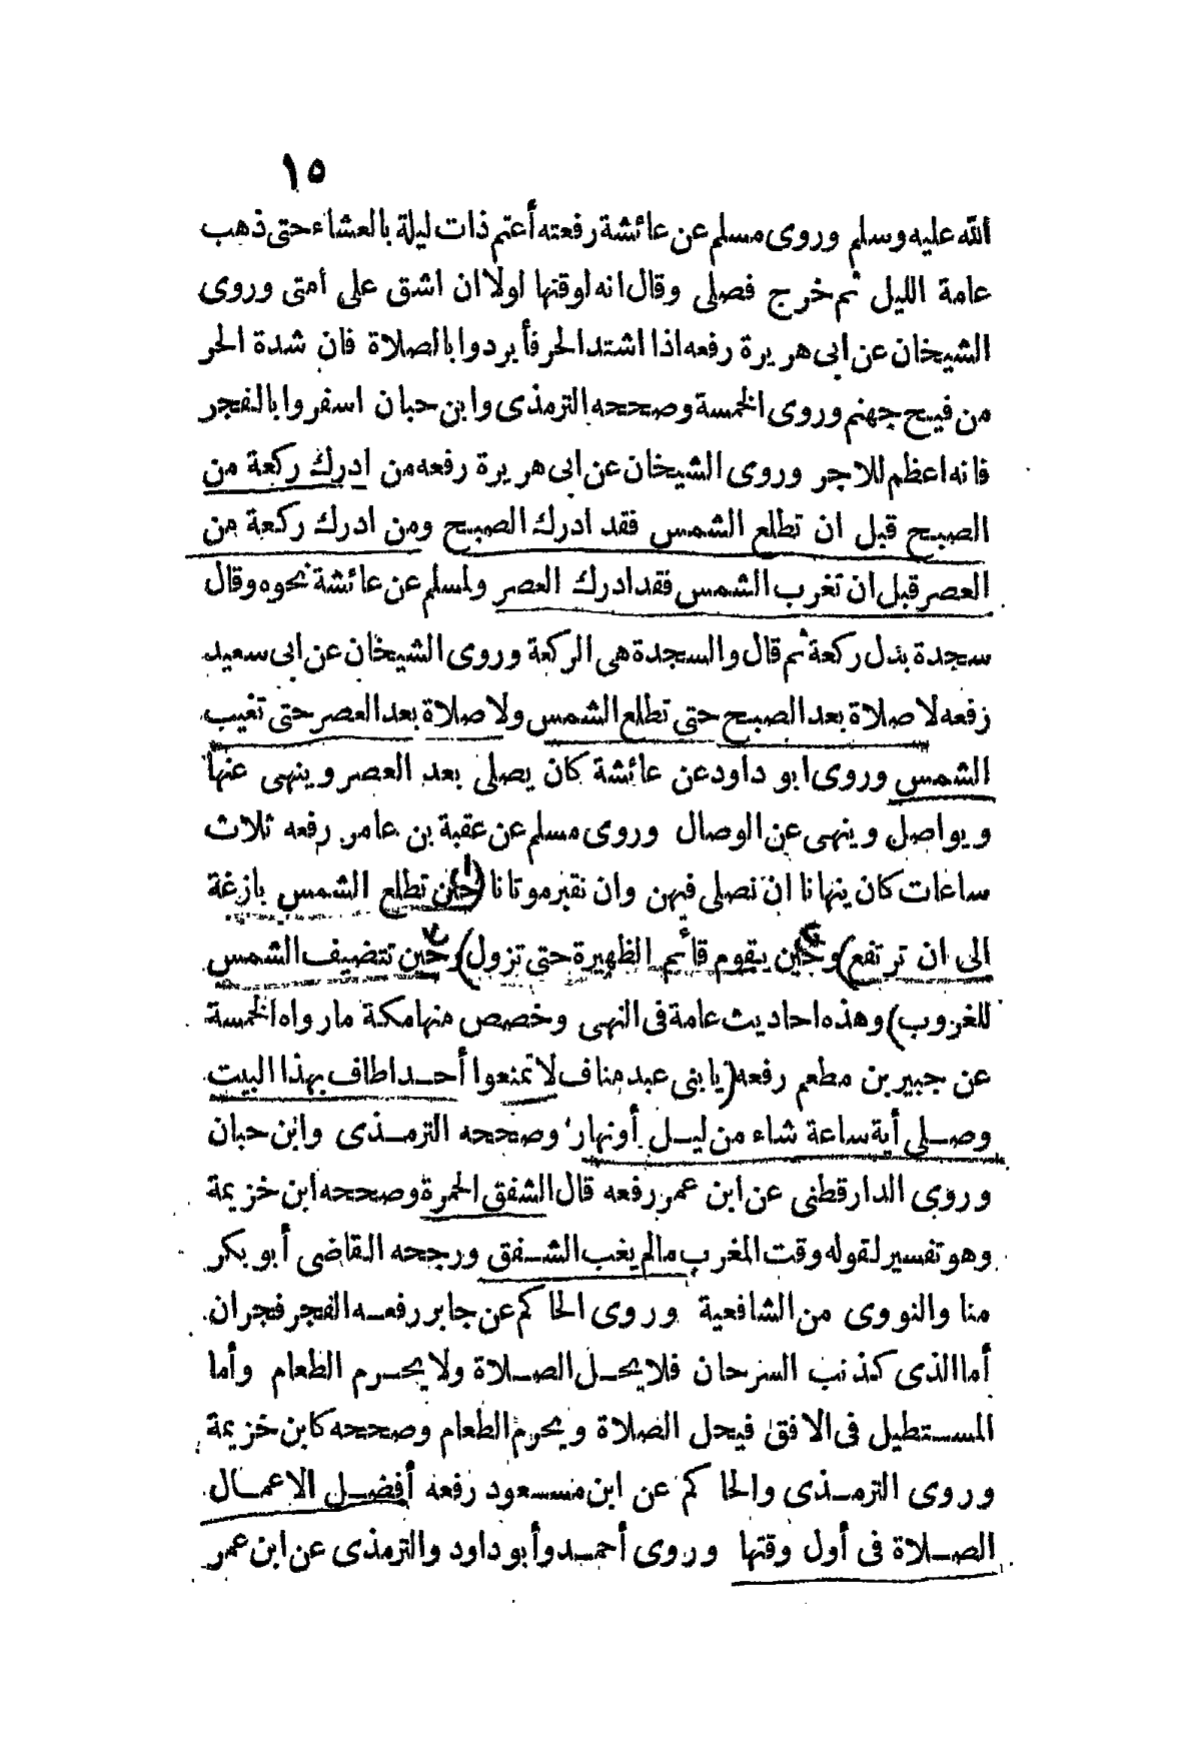 ١٥
الله عليه وسلم وروى مسلم عن عائشة رفعته أعتم ذات ليلة بالعشاء حتى ذهب
عامة الليل ثم خرج فصلى وقال انه لوقتها لولا ان اشق على امتى وروى
الشيخان عن ابى هريرة رفعه اذا اشتد الحر فأبردوا بالصلاة فان شدة الحر
من فيح جهنم وروى الخمسة وصححه الترمذى وابن حبان اسفروا بالفجر
فانه اعظم للاجر وروى الشيخان عن ابى هريرة رفعه من ادرك ركعة من
الصبح قبل ان تطلع الشمس فقد ادرك الصبح ومن ادرك ركعة من
العصر قبل ان تغرب الشمس فقد ادرك العصر ولمسلم عن عائشة نحوه وقال
سجدة بدل ركعة ثم قال والسجدة هى الركعة وروى الشيخان عن ابى سعيد
رفعه لا صلاة بعد الصبح حتى تطلع الشمس ولا صلاة بعد العصر حتى تغيب
الشمس وروى ابو داود عن عائشة كان يصلى بعد العصر وينهى عنها
ويواصل وينهى عن الوصال وروى مسلم عن عقبة بن عامر رفعه ثلاث
ساعات كان ينهانا ان نصلى فيهن وان نقبر موتانا (حين تطلع الشمس بازغة
الى ان ترتفع) وحين يقوم قائم الظهيرة حتى تزول) وحين تتضيف الشمس
للغروب) وهذه احاديث عامة فى النهى وخصص منها مكة ما رواه الخمسة
عن جبير بن مطعم رفعه (يا بنى عبد مناف لا تمنعوا أحدا طاف بهذا البيت
وصلى أية ساعة شاء من ليل أو نهار وصححه الترمذى وابن حبان
وروى الدارقطنى عن ابن عمر رفعه قال الشفق الحمرة وصححه ابن خزيمة
وهو تفسير لقوله وقت المغرب مالم يغب الشفق ورجحه القاضى أبو بكر
منا والنووى من الشافعية وروى الحاكم عن جابر رفعه الفجر فجران
أما الذى كذنب السرحان فلا يحل الصلاة ولا يحرم الطعام وأما
المستطيل فى الافق فيحل الصلاة ويحرم الطعام وصححه كابن خزيمة
وروى الترمذى والحاكم عن ابن مسعود رفعه أفضل الاعمال
الصلاة فى أول وقتها وروى أحمد وأبو داود والترمذى عن ابن عمر